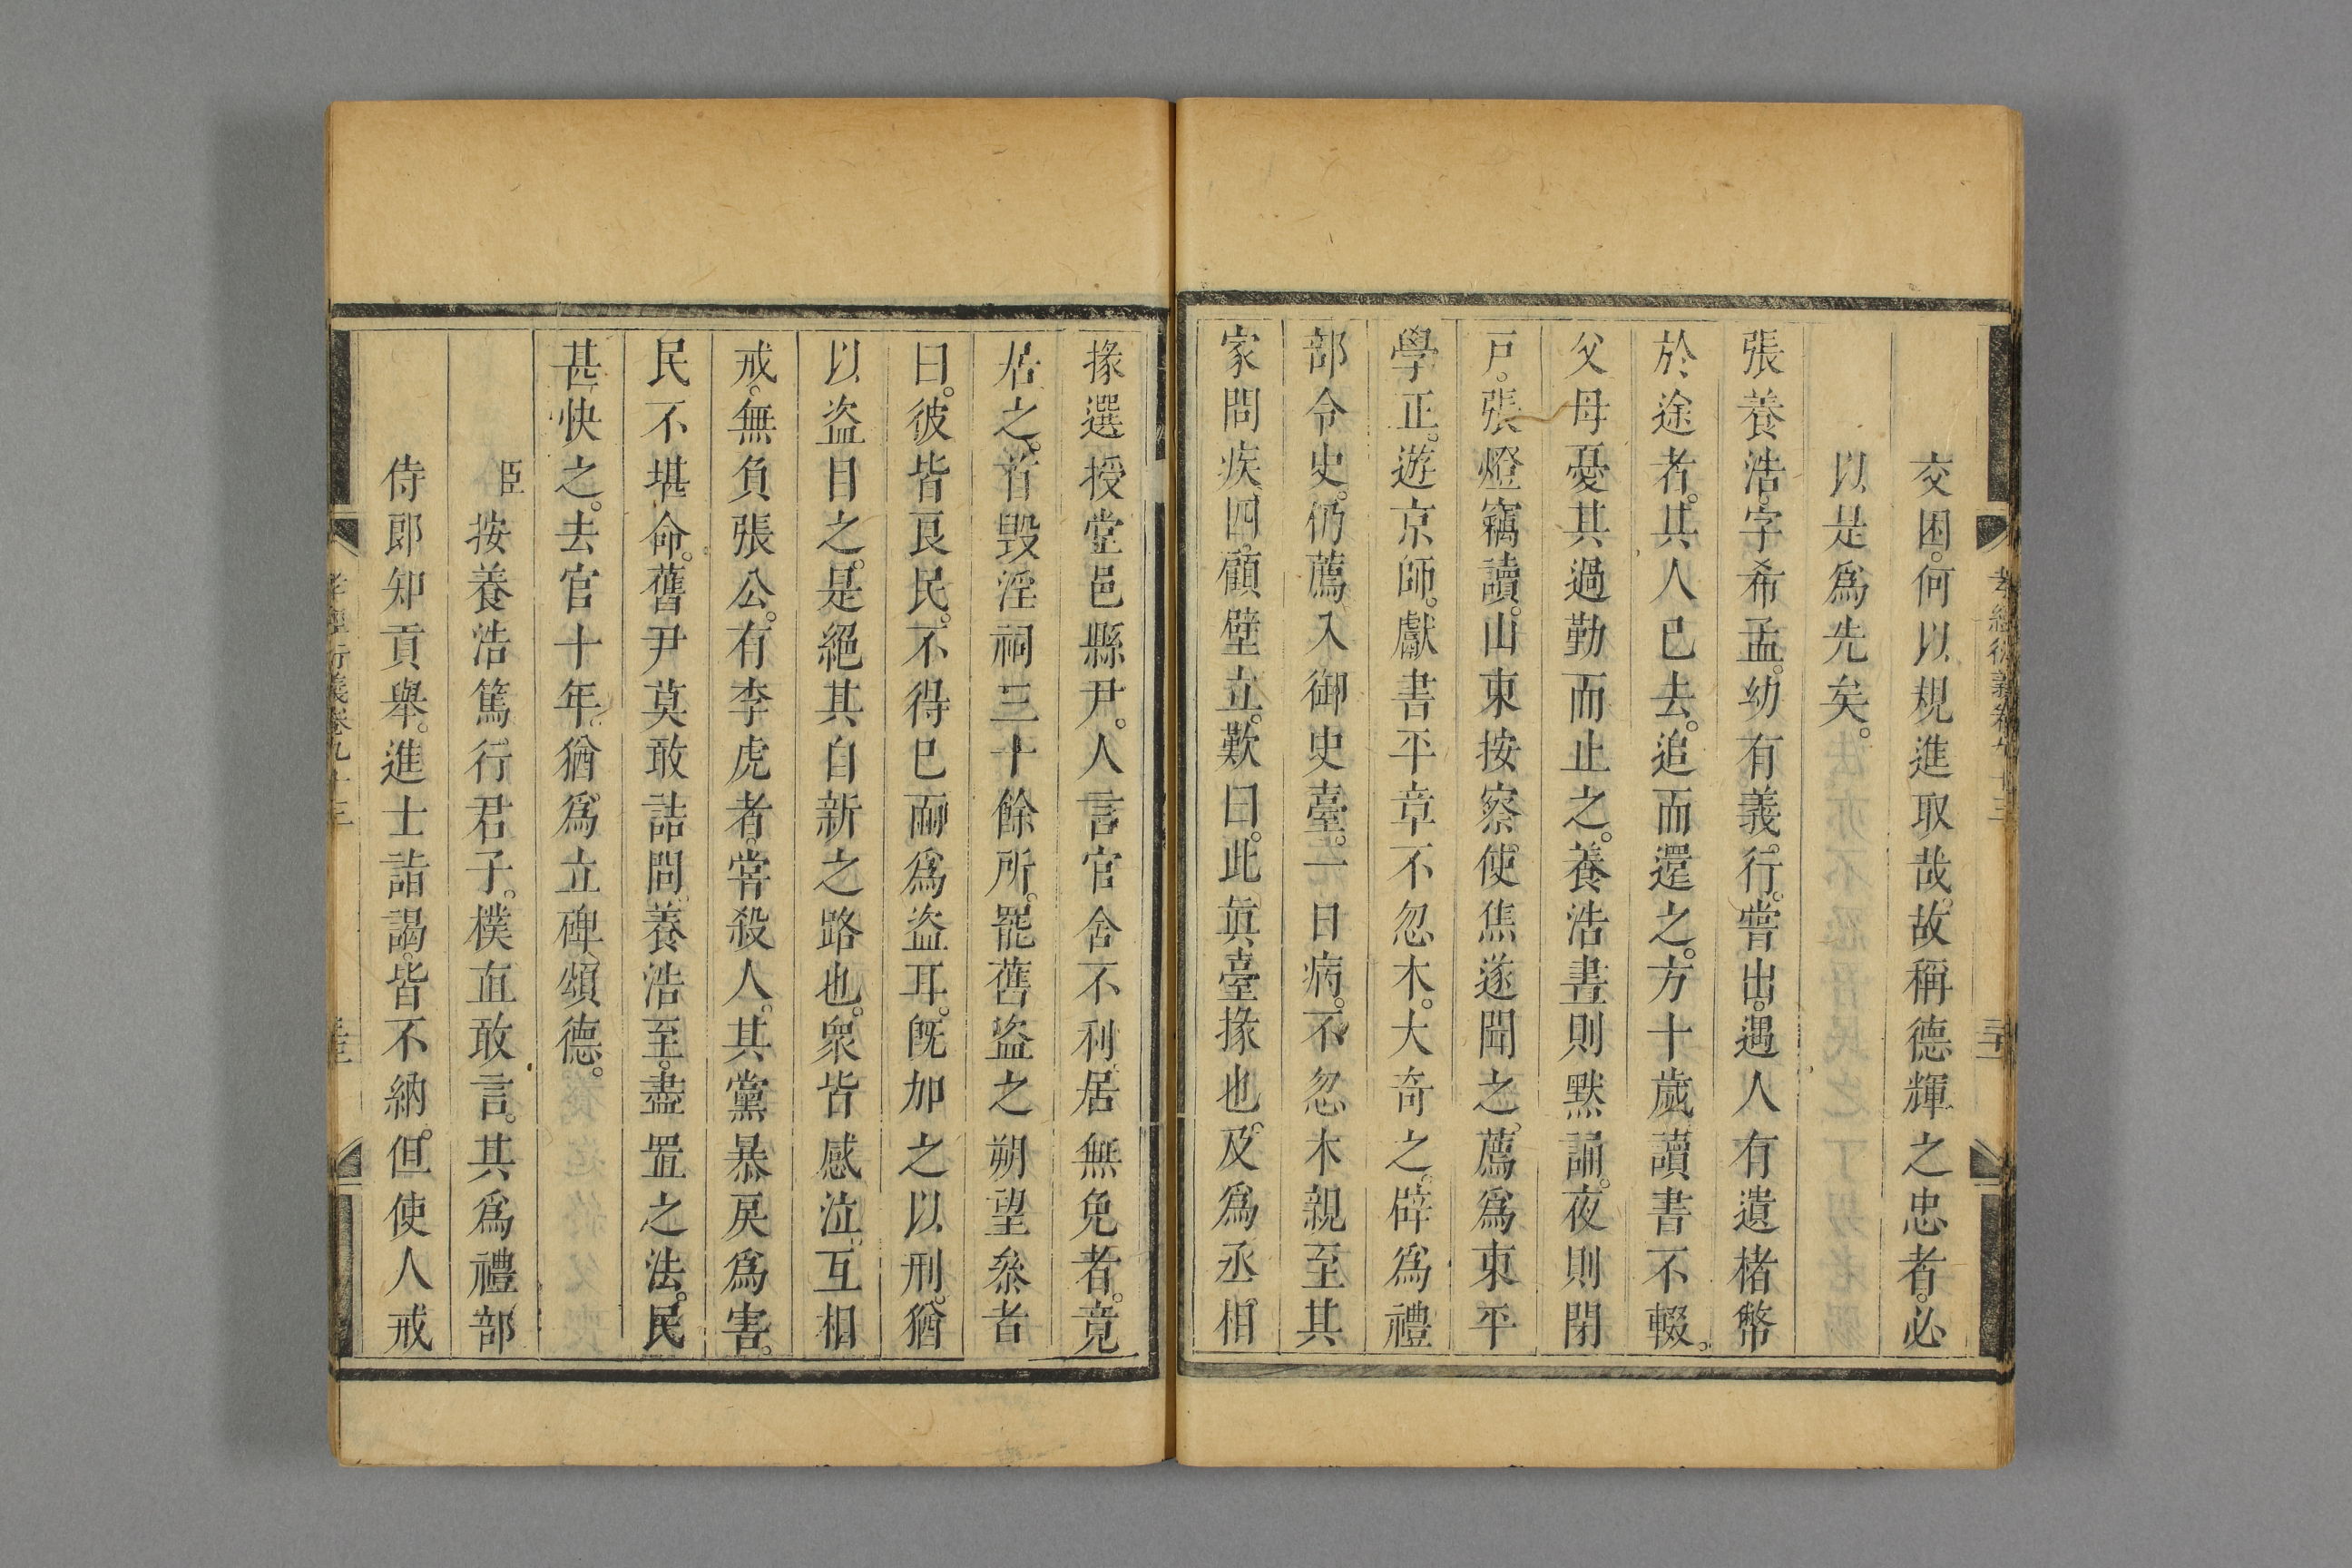 孝經衍義卷九十三
三十二
交困。何以規進取哉。故稱德輝之忠者。必
以是爲先矣。
張養浩。字希孟。幼有義行。嘗出。遇人有遺楮幣
於途者。其人已去。追而還之。方十歲讀書不輟。
父母憂其過勤而止之。養浩晝則默誦。夜則閉
戸。張燈竊讀。山東按察使焦遂聞之。薦爲東平
學正。遊京師。獻書平章不忽木。大奇之。辟爲禮
部令史。仍薦入御史臺。一日病。不忽木親至其
家問疾。四顧壁立。歎曰。此眞臺掾也。及爲丞相
掾選授堂邑縣尹。人言官舍不利居無免者。竟
居之。首毀淫祠三十餘所。罷舊盜之朔望叅者
曰。彼皆良民。不得已而爲盜耳。旣加之以刑。猶
以盜目之。是絕其自新之路也。衆皆感泣。互相
戒。無負張公。有李虎者。嘗殺人。其黨暴戾爲害。
民不堪命。舊尹莫敢詰問。養浩至。盡置之法。民
甚快之。去官十年。猶爲立碑頌德。
臣按養浩篤行君子。樸直敢言。其爲禮部
侍郎知貢舉。進士詣謁。皆不納。但使人戒
孝經衍義卷九十三